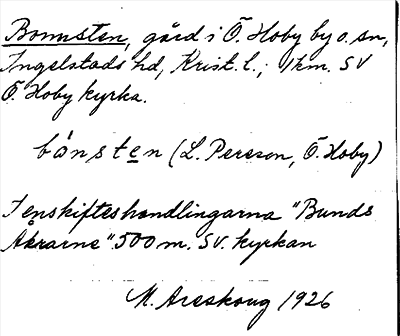 Bonnsten, gård i Ö. Hoby by o. sn,
Ingelstads hd, Krist. l.; 1 km. SV
Ö. Hoby kyrka.
bånsten (L. Persson, Ö. Hoby)
I enskifteshandlingarna "Bunds
Åkrarne" 500 m. SV. kyrkan
M. Areskoug 1926